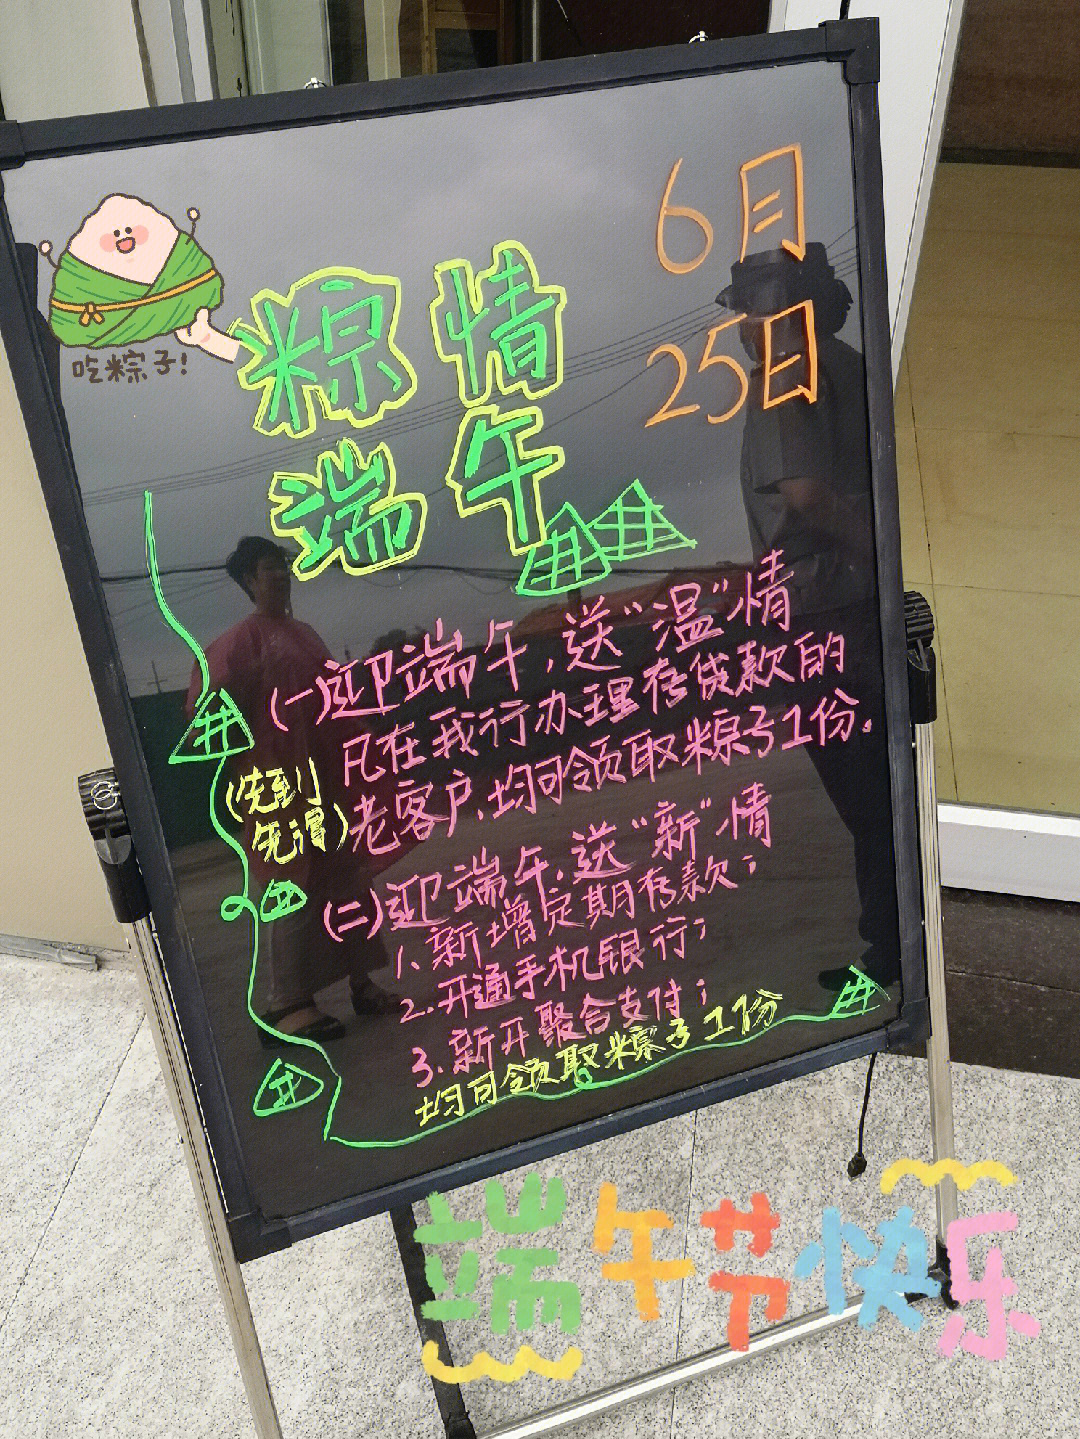 6月
25日
吃粽子!
粽情
端午
(一)迎端午,送"温"情
凡在我行办理存贷款的
老客户,均可领取粽子1份。
(先到
先得)
(二)迎端午,送"新"情
1、新增定期存款;
2.开通手机银行;
3.新开聚合支付;
均可领取粽子1份
端午节快乐